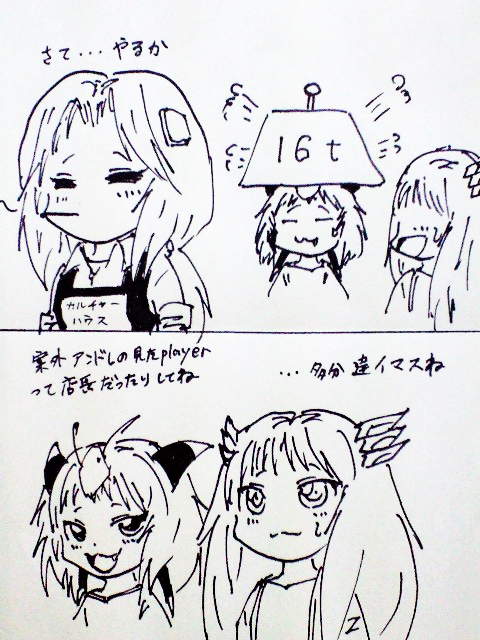 さて...やるか
16t
カルチャー
ハウス
案外アンドしの見たplayer
って店長だったりしてね
...多分違イマスね